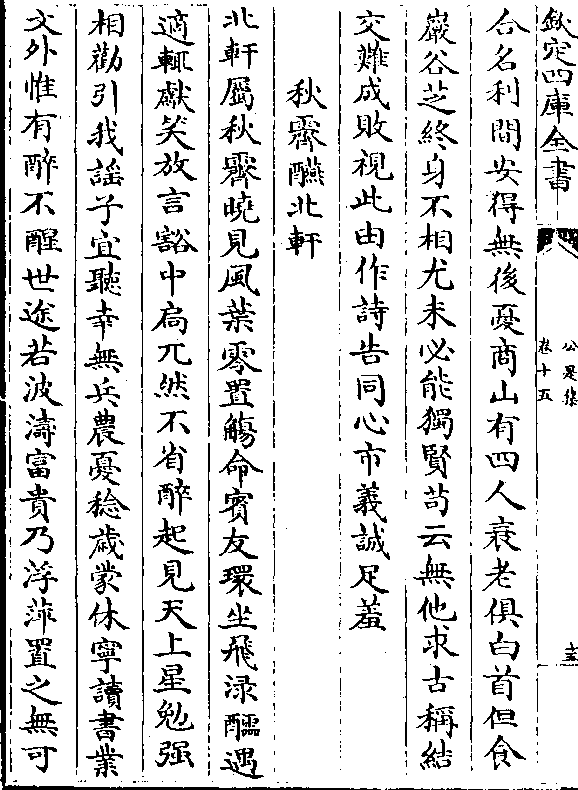 欽定四庫全書
公是集
卷十五
十五
合名利間安得無後憂商山有四人衰老俱白首但食
巖谷芝終身不相尤未必能獨賢苟云無他求古稱結
交難成敗視此由作詩告同心市義誠足羞
秋霽醼北軒
北軒屬秋霽曉見風葉零置觴命賓友環坐飛渌醽遇
適輒獻笑放言豁中扃兀然不省醉起見天上星勉强
相勸引我謡子宜聽幸無兵農憂稔歲蒙休寧讀書業
文外惟有醉不醒世途若波濤富貴乃浮萍置之無可